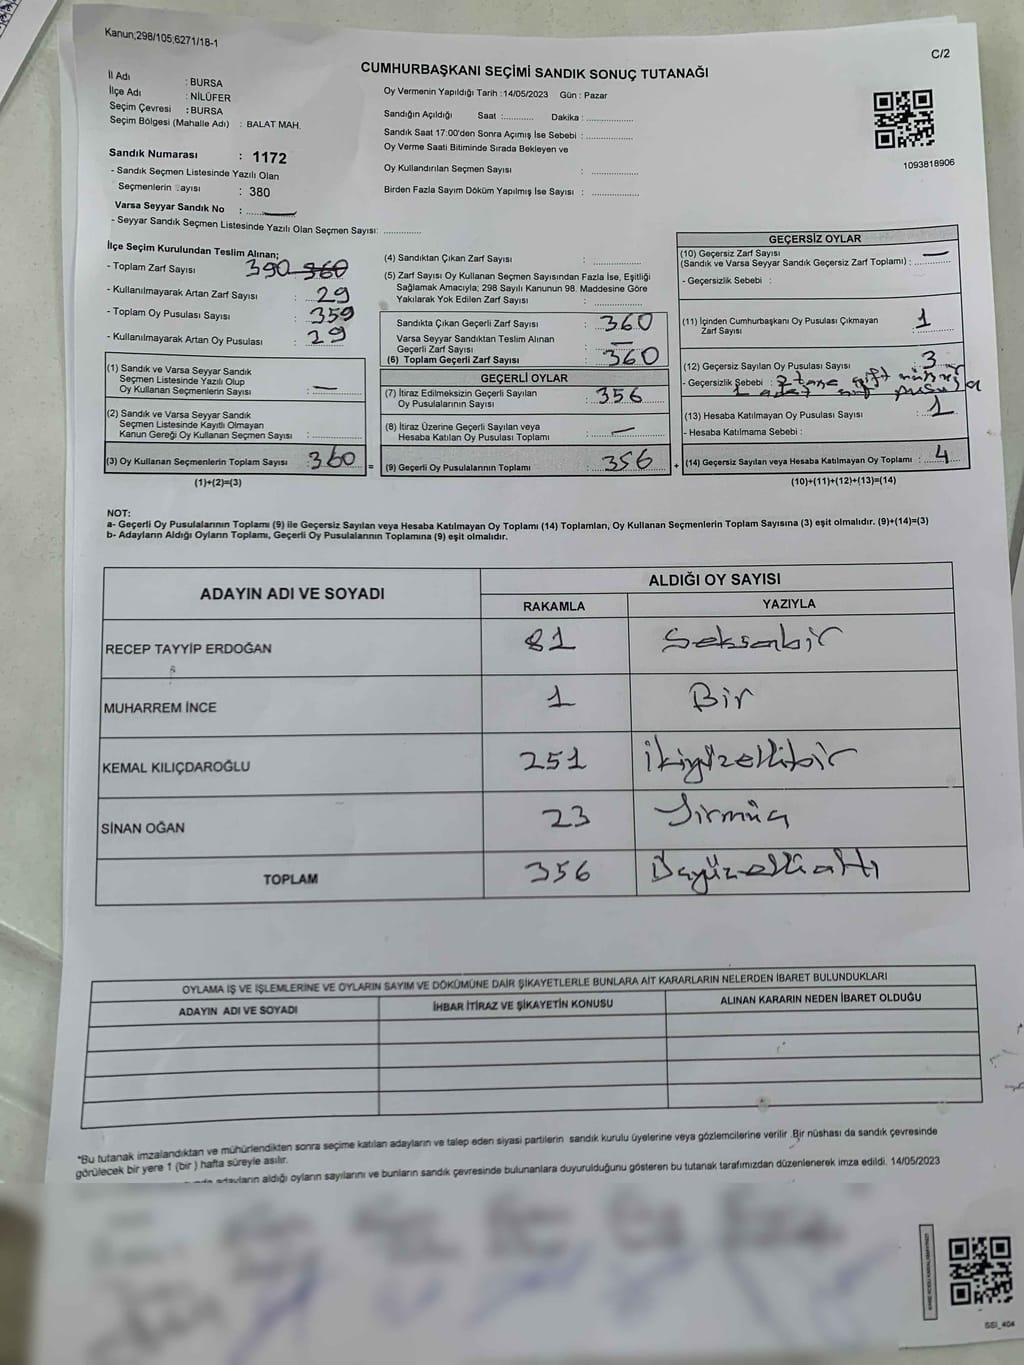 Kanun;298/105;6271/18-1
C/2
CUMHURBAŞKANI SEÇİMİ SANDIK SONUÇ TUTANAĞI
İl Adı : BURSA
İlçe Adı : NİLÜFER
Seçim Çevresi : BURSA
Seçim Bölgesi (Mahalle Adı) : BALAT MAH.
Sandık Numarası : 1172
- Sandık Seçmen Listesinde Yazılı Olan
Seçmenlerin Sayısı : 380
Varsa Seyyar Sandık No :
- Seyyar Sandık Seçmen Listesinde Yazılı Olan Seçmen Sayısı:
Oy Vermenin Yapıldığı Tarih :14/05/2023 Gün : Pazar
Sandığın Açıldığı Saat : Dakika :
Sandık Saat 17:00'den Sonra Açımış İse Sebebi :
Oy Verme Saati Bitiminde Sırada Bekleyen ve
Oy Kullandırılan Seçmen Sayısı :
Birden Fazla Sayım Döküm Yapılmış İse Sayısı :
1093818906
İlçe Seçim Kurulundan Teslim Alınan;
- Toplam Zarf Sayısı 390 360
- Kullanılmayarak Artan Zarf Sayısı : 29
- Toplam Oy Pusulası Sayısı : 359
- Kullanılmayarak Artan Oy Pusulası : 29
(1) Sandık ve Varsa Seyyar Sandık
Seçmen Listesinde Yazılı Olup
Oy Kullanan Seçmenlerin Sayısı : —
(2) Sandık ve Varsa Seyyar Sandık
Seçmen Listesinde Kayıtlı Olmayan
Kanun Gereği Oy Kullanan Seçmen Sayısı :
(3) Oy Kullanan Seçmenlerin Toplam Sayısı : 360
(1)+(2)=(3)
(4) Sandıktan Çıkan Zarf Sayısı :
(5) Zarf Sayısı Oy Kullanan Seçmen Sayısından Fazla İse, Eşitliği
Sağlamak Amacıyla; 298 Sayılı Kanunun 98. Maddesine Göre
Yakılarak Yok Edilen Zarf Sayısı :
Sandıkta Çıkan Geçerli Zarf Sayısı : 360
Varsa Seyyar Sandıktan Teslim Alınan
Geçerli Zarf Sayısı : —
(6) Toplam Geçerli Zarf Sayısı : 360
GEÇERLİ OYLAR
(7) İtiraz Edilmeksizin Geçerli Sayılan
Oy Pusulalarının Sayısı : 356
(8) İtiraz Üzerine Geçerli Sayılan veya
Hesaba Katılan Oy Pusulası Toplamı : —
=
(9) Geçerli Oy Pusulalarının Toplamı : 356
+
GEÇERSİZ OYLAR
(10) Geçersiz Zarf Sayısı
(Sandık ve Varsa Seyyar Sandık Geçersiz Zarf Toplamı) : —
- Geçersizlik Sebebi :
(11) İçinden Cumhurbaşkanı Oy Pusulası Çıkmayan
Zarf Sayısı : 1
(12) Geçersiz Sayılan Oy Pusulası Sayısı : 3
- Geçersizlik Sebebi : 2 tane çift
(13) Hesaba Katılmayan Oy Pusulası Sayısı : 1
- Hesaba Katılmama Sebebi :
(14) Geçersiz Sayılan veya Hesaba Katılmayan Oy Toplamı : 4
(10)+(11)+(12)+(13)=(14)
NOT:
a- Geçerli Oy Pusulalarının Toplamı (9) ile Geçersiz Sayılan veya Hesaba Katılmayan Oy Toplamı (14) Toplamları, Oy Kullanan Seçmenlerin Toplam Sayısına (3) eşit olmalıdır. (9)+(14)=(3)
b- Adayların Aldığı Oyların Toplamı, Geçerli Oy Pusulalarının Toplamına (9) eşit olmalıdır.
ADAYIN ADI VE SOYADI
ALDIĞI OY SAYISI
RAKAMLA YAZIYLA
RECEP TAYYİP ERDOĞAN 81 Seksenbir
MUHARREM İNCE 1 Bir
KEMAL KILIÇDAROĞLU 251 İkiyüzellibir
SİNAN OĞAN 23 Yirmüç
TOPLAM 356 Üçyüzellialtı
OYLAMA İŞ VE İŞLEMLERİNE VE OYLARIN SAYIM VE DÖKÜMÜNE DAİR ŞİKAYETLERLE BUNLARA AİT KARARLARIN NELERDEN İBARET BULUNDUKLARI
ADAYIN ADI VE SOYADI İHBAR İTİRAZ VE ŞİKAYETİN KONUSU ALINAN KARARIN NEDEN İBARET OLDUĞU
*Bu tutanak imzalandıktan ve mühürlendikten sonra seçime katılan adayların ve talep eden siyasi partilerin sandık kurulu üyelerine veya gözlemcilerine verilir .Bir nüshası da sandık çevresinde
görülecek bir yere 1 (bir ) hafta süreyle asılır.
adayların aldığı oyların sayılarını ve bunların sandık çevresinde bulunanlara duyurulduğunu gösteren bu tutanak tarafımızdan düzenlenerek imza edildi. 14/05/2023
SSI_404